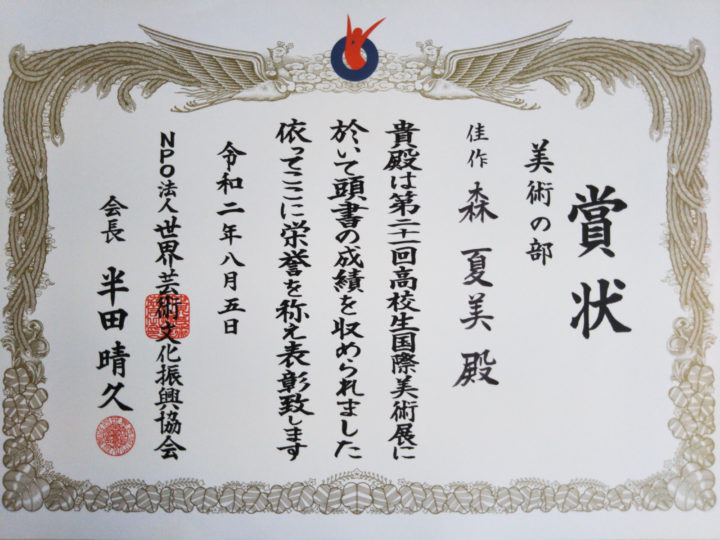 賞状
美術の部
佳作 森 夏美 殿
貴殿は第二十一回高校生国際美術展に
於いて頭書の成績を収められました
依ってここに栄誉を称え表彰致します
令和二年八月五日
NPO法人 世界芸術文化振興協会
会長 半田晴久